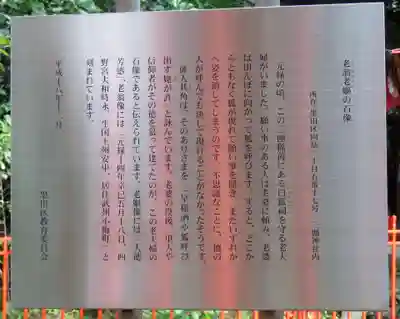 老翁老嫗の石像
所在 墨田区向島二丁目五番十七号 三囲神社内
元禄の頃、この三囲稲荷にある白狐祠を守る老夫
婦がいました。願い事のある人は老婆に頼み、老婆
は田んぼに向かって狐を呼びます。すると、どこか
らともなく狐が現れて願い事を聞き、またいずれか
へ姿を消してしまうのです。不思議なことに、他の
人が呼んでも決して現れることがなかったそうです。
俳人其角は、そのありさまを「早稲酒や狐呼び
出す姥が許」と詠んでいます。老婆の没後、里人や
信仰者がその徳を慕って建てたのが、この老夫婦の
石像であると伝えられています。老嫗像には「大徳
芳感」、老翁像には「元禄十四年辛巳五月十八日、四
野宮大和時永、生国上州安中、居住武州小梅町」と
刻まれています。
平成十八年十二月
墨田区教育委員会